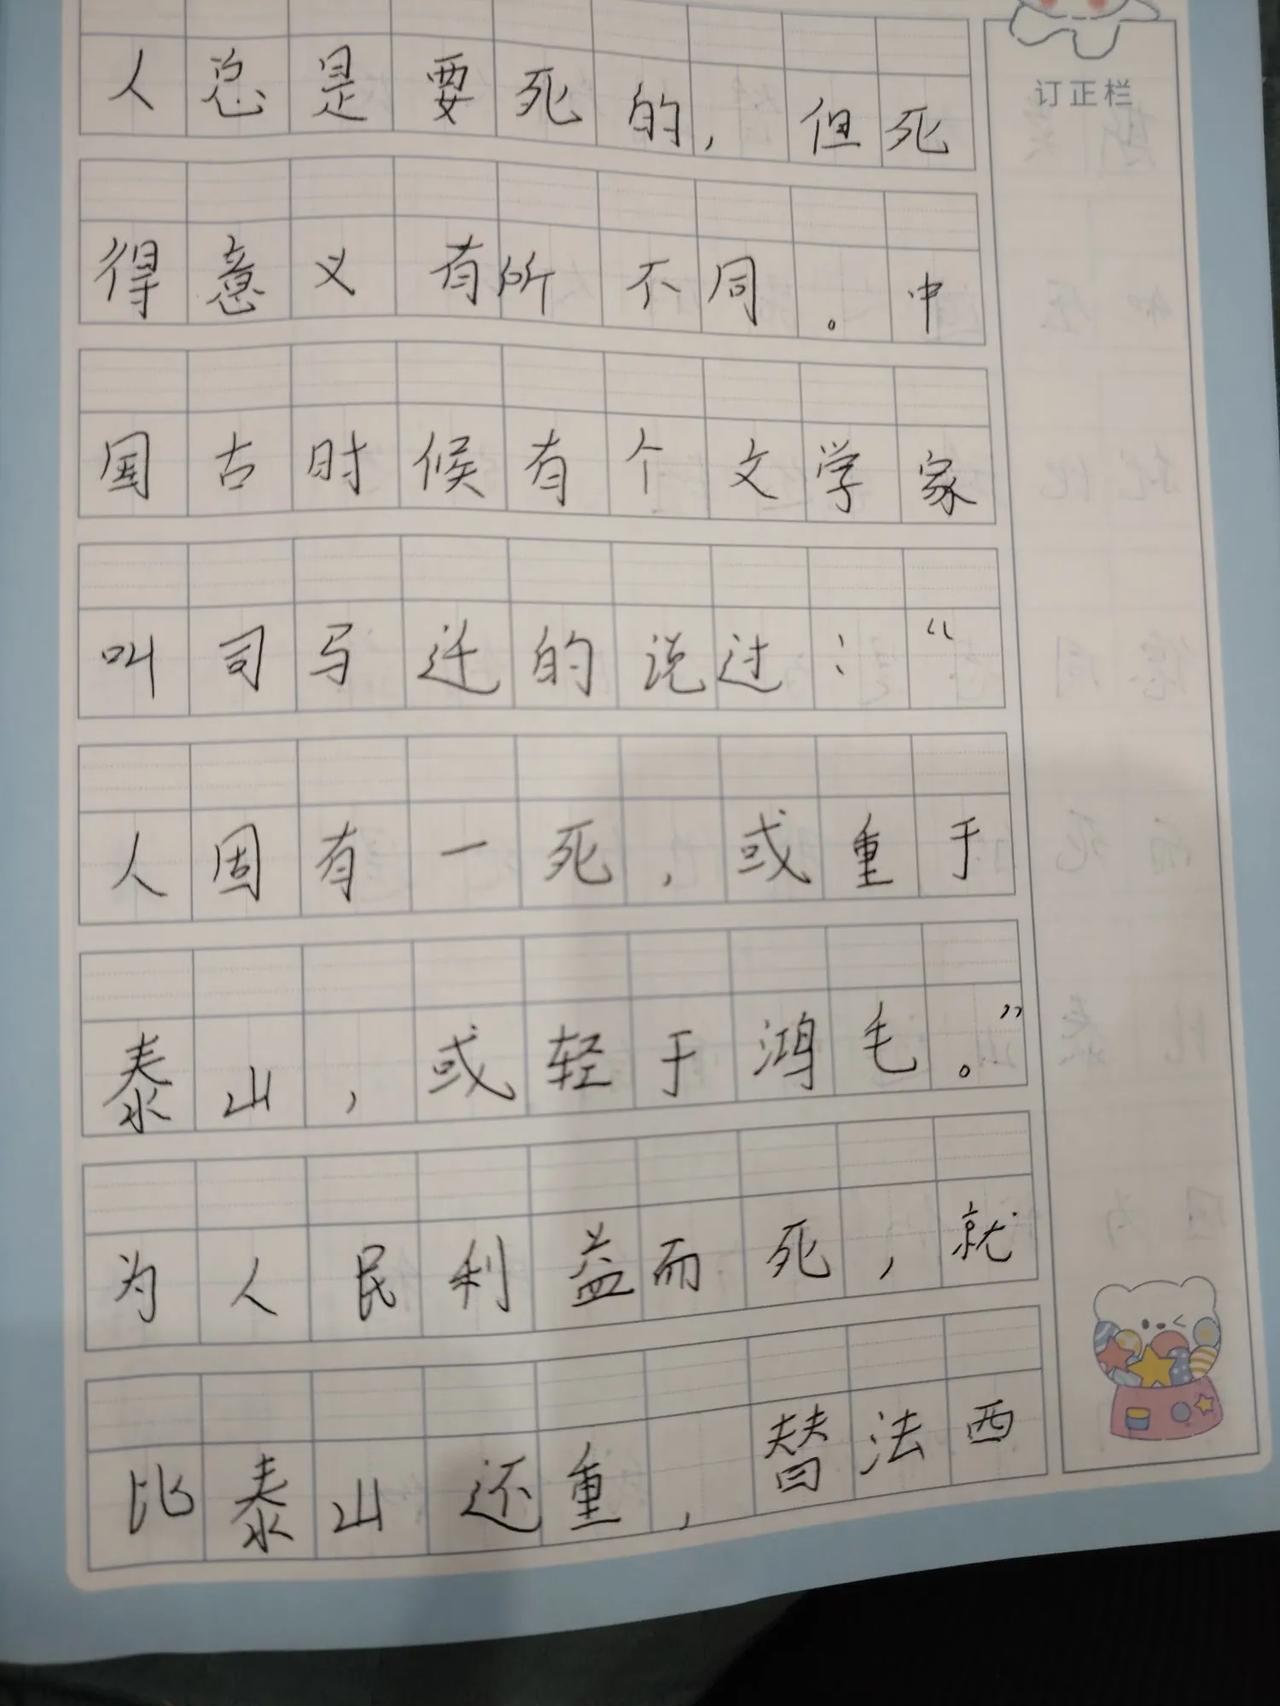 订正栏
人总是要死的，但死
得意义有所不同。中
国古时候有个文学家
叫司马迁的说过：“
人固有一死，或重于
泰山，或轻于鸿毛。”
为人民利益而死，就
比泰山还重，替法西